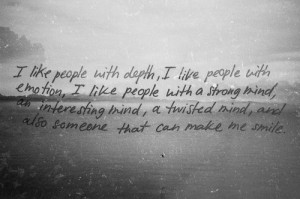 I like people with depth, I like people with
emotion, I like people with a strong mind,
an interesting mind, a twisted mind, and
also someone that can make me smile.